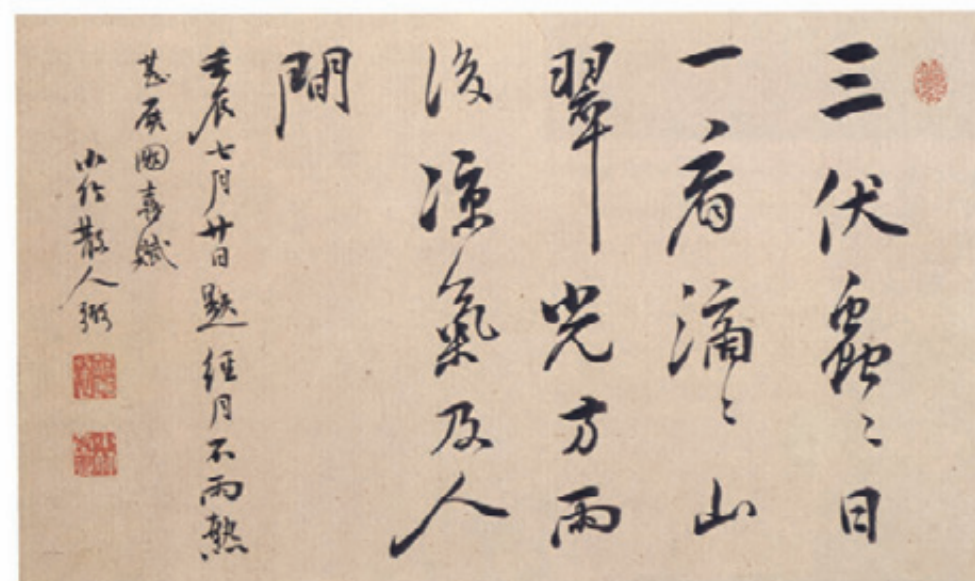 三伏蟲〻日
一看滴〻山
翠光方雨
後涼氣及人
間
壬辰七月廿日題經月不雨熱
甚展圖喜賦
小竹散人弼